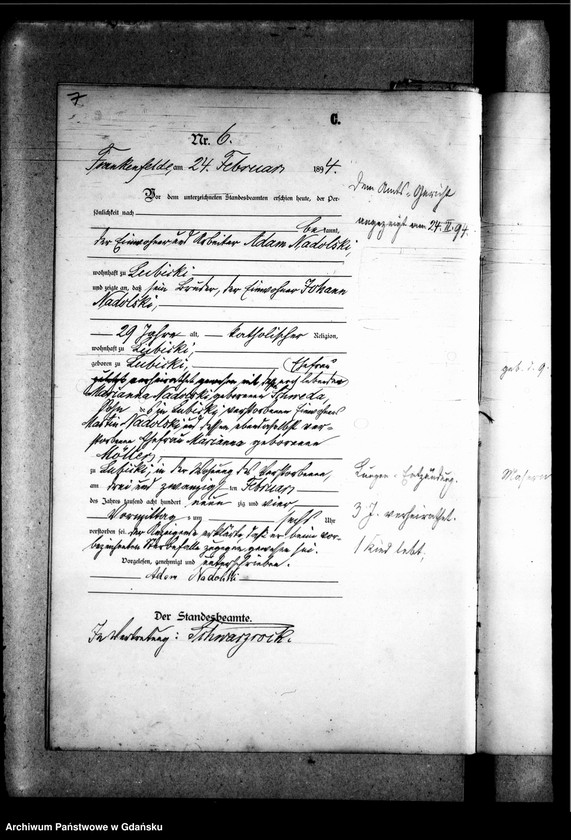 7
C.
Nr. 6.
Frankenfelde, am 24. Februar 1894.
Vor dem unterzeichneten Standesbeamten erschien heute, der Per-
sönlichkeit nach
be kannt,
der Einwohner und Arbeiter Adam Nadolski,
wohnhaft zu Lubiski
und zeigte an, daß sein Bruder, der Einwohner Johann
Nadolski,
29 Jahre alt, katholischer Religion,
wohnhaft zu Lubiski,
geboren zu Lubiski, Ehefrau
zuletzt verheirathet gewesen mit der noch lebenden
Marianna Nadolski, geborenen
Sohn des zu Lubiski verstorbenen Einwohners
Martin Nadolski und dessen ebendaselbst ver-
storbene Ehefrau Marianna geborenen
Möller,
zu Lubiski, in der Wohnung des Verstorbenen,
am drei und zwanzig ten Februar
des Jahres tausend acht hundert neun zig und vier
Vormittag s um sechs Uhr
verstorben sei. Der Anzeigende erklärte, daß er beim vor-
bezeichneten Sterbefalle zugegen gewesen sei.
Vorgelesen, genehmigt und unterschrieben.
Adam Nadolski
Der Standesbeamte.
In Vertretung: Schwarzrock.
Dem Amts-Gericht
angezeigt am 24. II. 94.
Lungen-Entzündung.
3 J. verheirathet.
1 Kind lebt,
geb. d. 9.
Masern
Archiwum Państwowe w Gdańsku